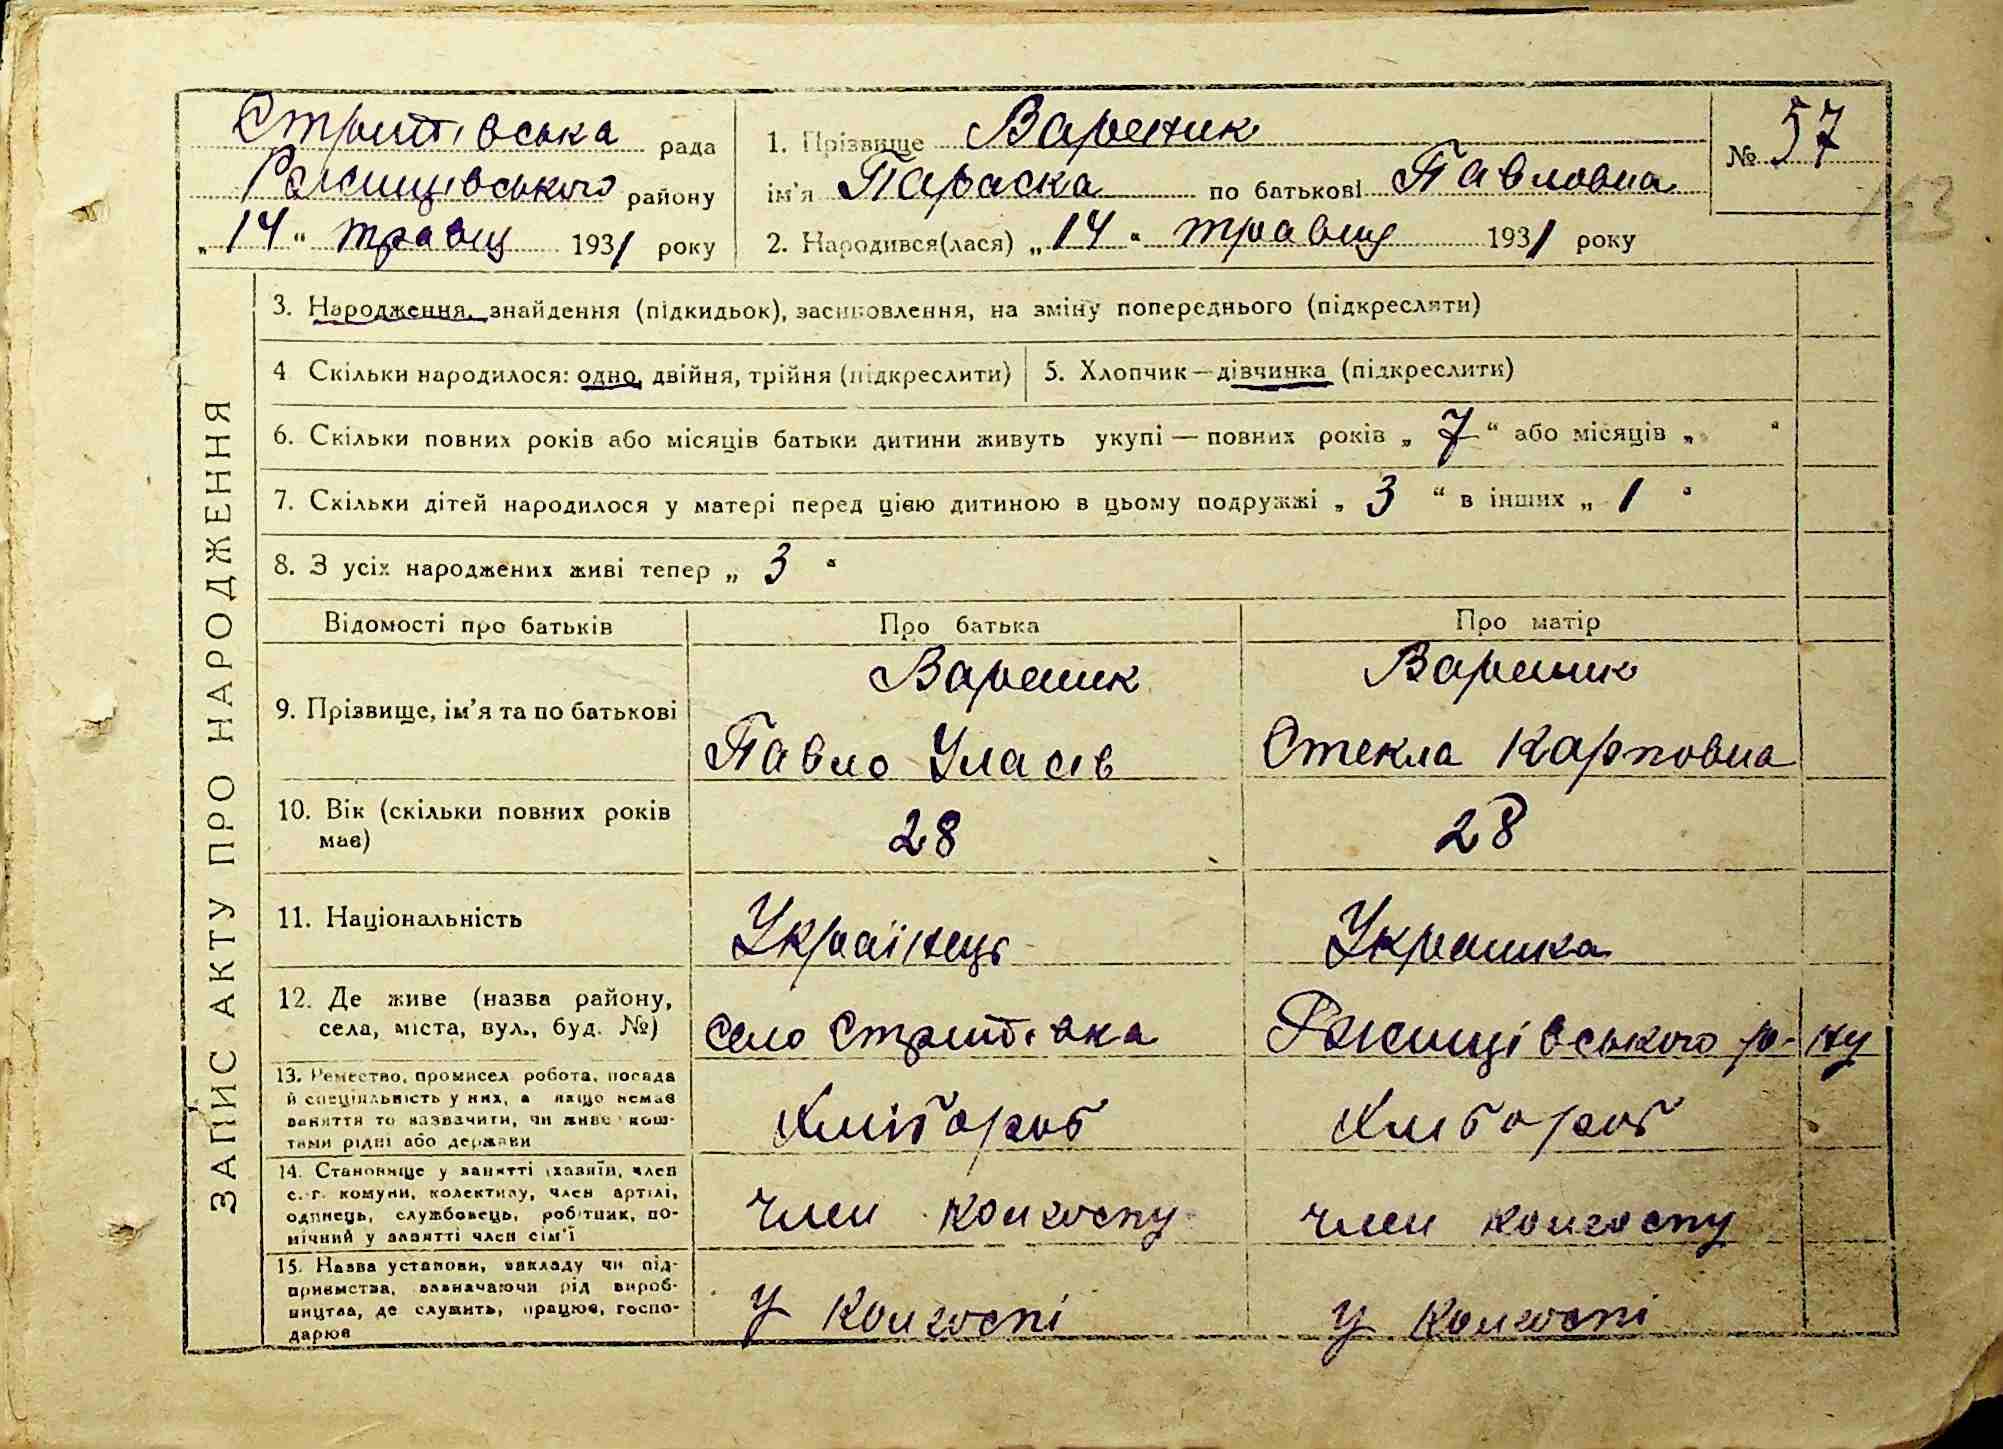 Стритівська рада
Ржищівського району
„ 14 “ травня 1931 року
1. Прізвище Вареник
ім'я Параска по батькові Павловна
2. Народився(лася) „ 14 “ травня 1931 року
№ 57
163
ЗАПИС АКТУ ПРО НАРОДЖЕННЯ
3. Народження, знайдення (підкидьок), засиновлення, на зміну попереднього (підкресляти)
4 Скільки народилося: одно, двійня, трійня (підкреслити)
5. Хлопчик—дівчинка (підкреслити)
6. Скільки повних років або місяців батьки дитини живуть укупі — повних років „ 7 “ або місяців „ “
7. Скільки дітей народилося у матері перед цією дитиною в цьому подружжі „ 3 “ в інших „ 1 “
8. З усіх народжених живі тепер „ 3 “
Відомості про батьків
Про батька
Про матір
9. Прізвище, ім'я та по батькові
Вареник
Павло Уласів
Вареник
Стекла Карповна
10. Вік (скільки повних років
має)
28
28
11. Національність
Українець
Українка
12. Де живе (назва району,
села, міста, вул., буд. №)
село Стритівка
Ржищівського р-ну
13. Ремество, промисел робота, посада
й спеціяльність у них, а якщо немає
заняття то зазначити, чи живе кош-
тами рідні або держави
Хлібороб
Хлібороб
14. Становище у занятті (хазяїн, член
с.-г. комуни, колективу, член артілі,
одинець, службовець, робітник, по-
мічний у занятті член сім'ї
член колгоспу
член колгоспу
15. Назва установи, закладу чи під-
приємства, зазначаючи рід вироб-
ництва, де служить, працює, госпо-
дарює
У колгоспі
У колгоспі